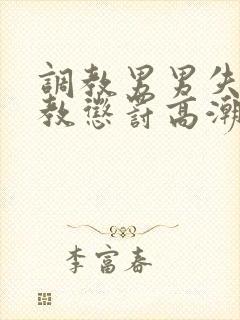 調教男男失
教懲罰高潮
李富春